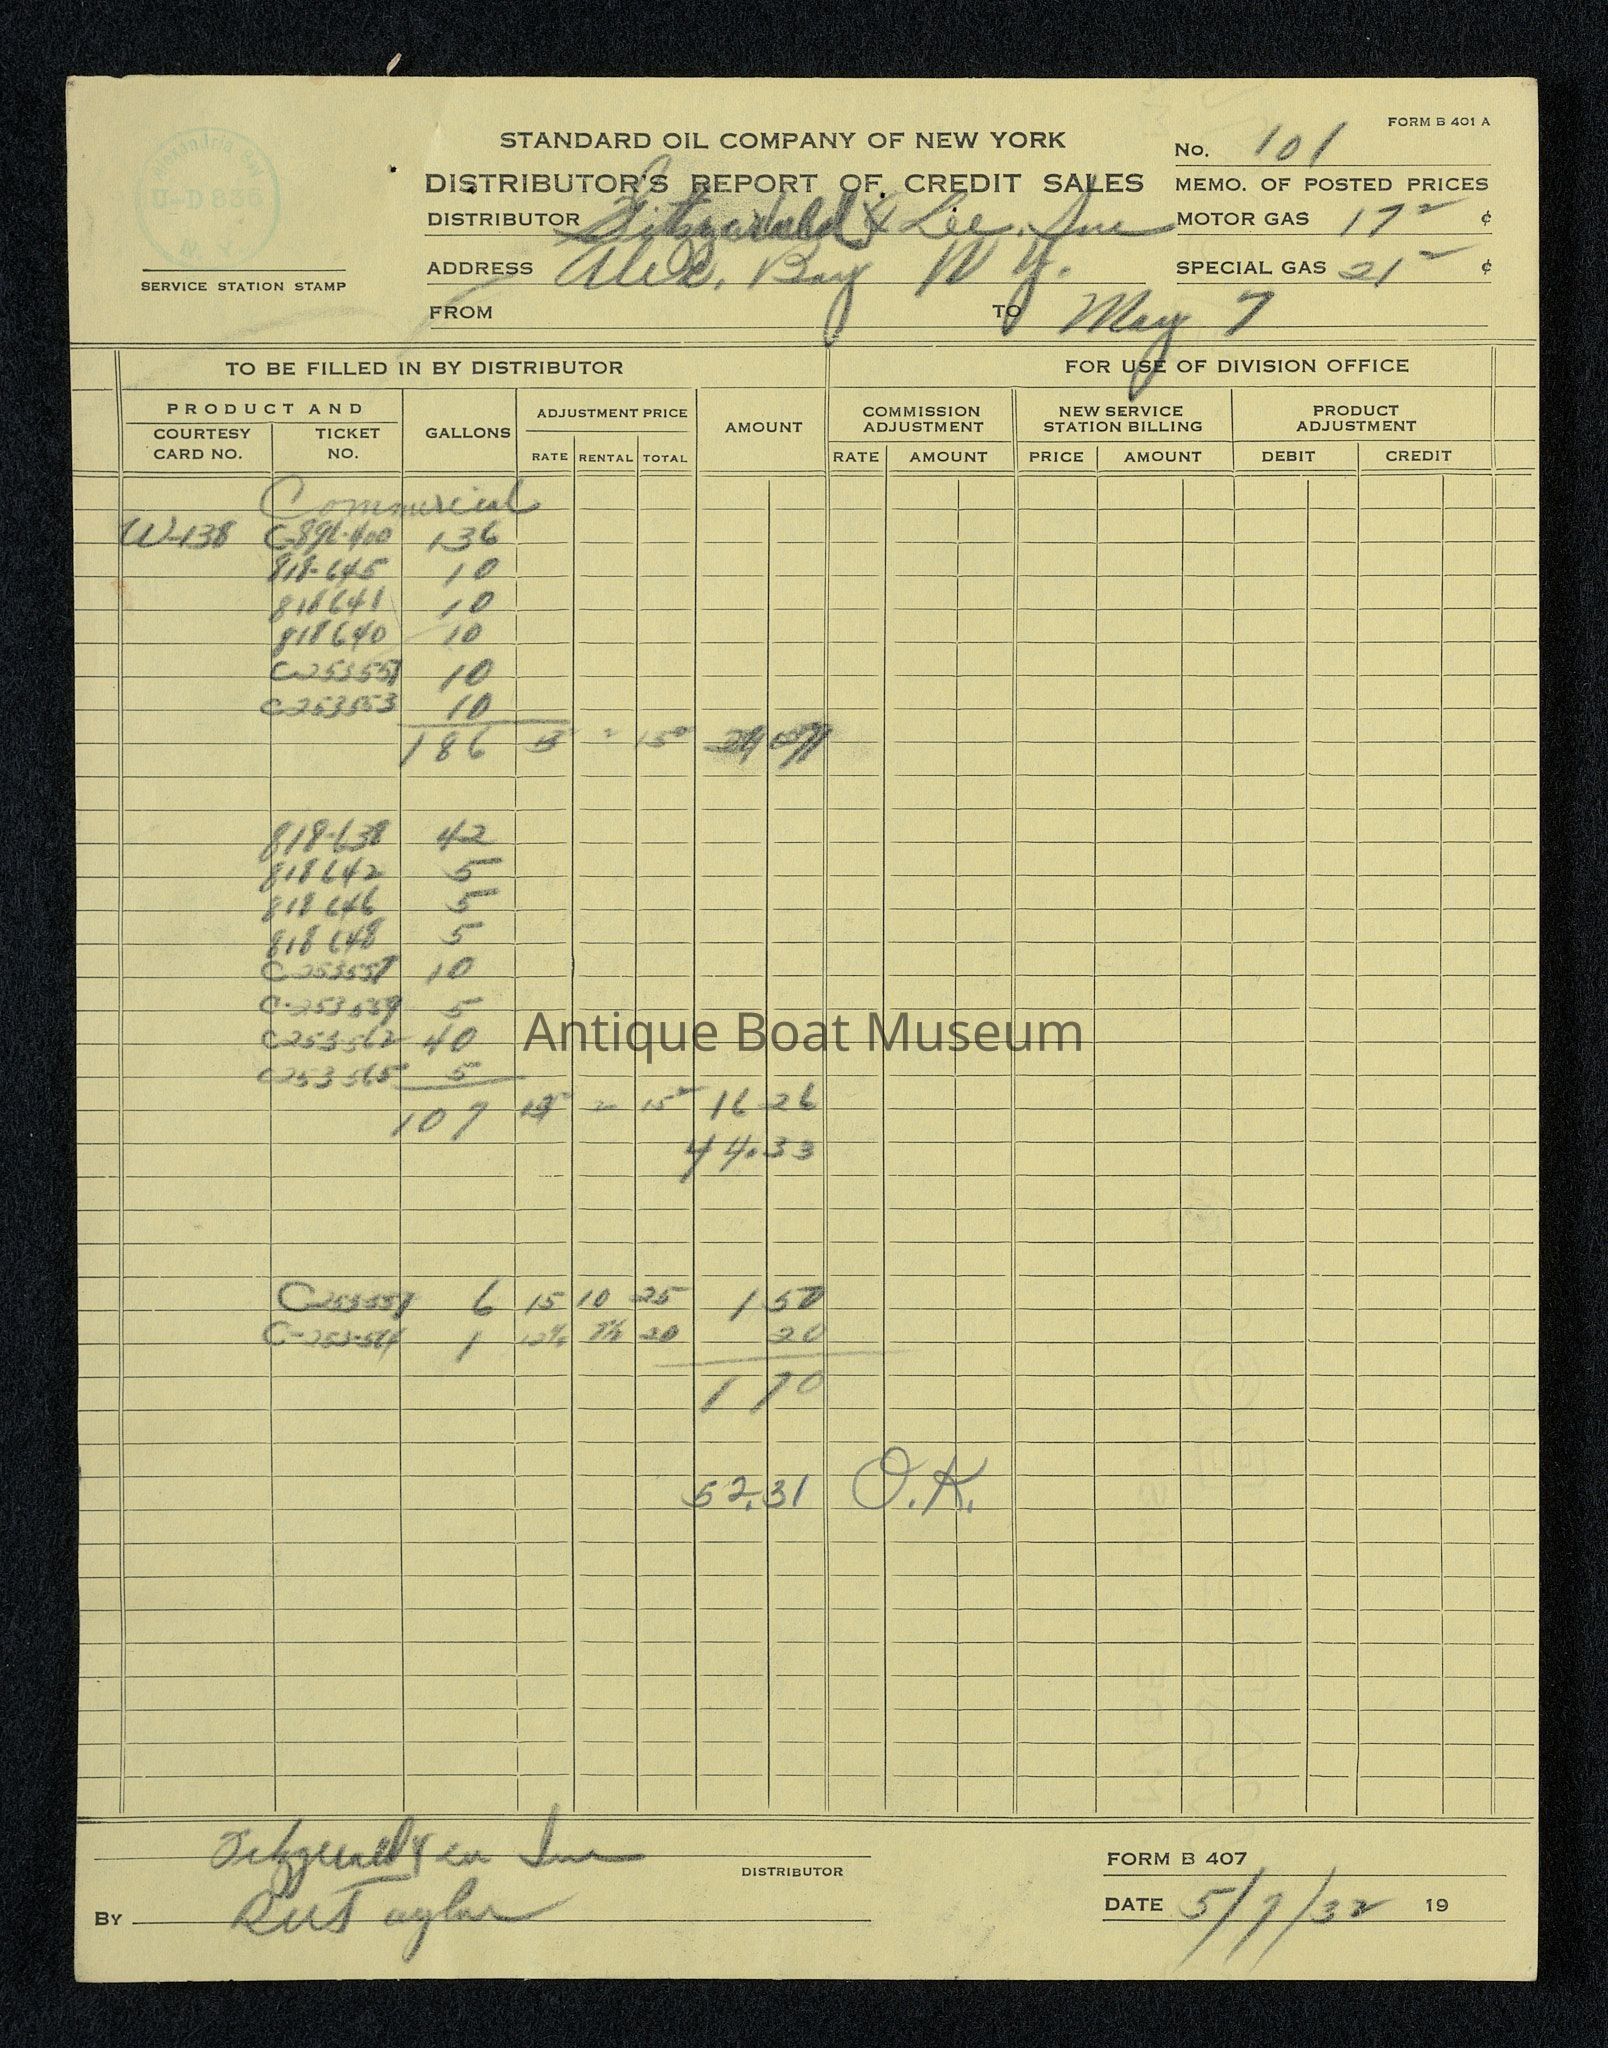 FORM B 401 A
STANDARD OIL COMPANY OF NEW YORK
No. 101
DISTRIBUTOR'S REPORT OF CREDIT SALES
MEMO. OF POSTED PRICES
Alexandria Bay
U-D 836
N.Y.
DISTRIBUTOR Fitzgerald & Lee, Inc
MOTOR GAS 17 2 ¢
ADDRESS Alex. Bay N Y.
SPECIAL GAS 21 2 ¢
SERVICE STATION STAMP
FROM TO May 7
TO BE FILLED IN BY DISTRIBUTOR FOR USE OF DIVISION OFFICE
PRODUCT AND
COURTESY CARD NO. TICKET NO. GALLONS ADJUSTMENT PRICE AMOUNT COMMISSION ADJUSTMENT NEW SERVICE STATION BILLING PRODUCT ADJUSTMENT
RATE RENTAL TOTAL RATE AMOUNT PRICE AMOUNT DEBIT CREDIT
Commercial
W-138 136
818-645 10
818641 10
818640 10
10
C253553 10
186 15
818-638 42
818642 5
818646 5
818648 5
C253557 10
C-253559 5
C253562 40
C253565 5
107 15 2 16 26
44.33
Antique Boat Museum
6 15 10 25 1 50
1 12½ 7½ 20 20
1 70
52.31 O.K.
Fitzgerald & Lee Inc
DISTRIBUTOR
FORM B 407
BY Taylor
DATE 5/7/32 19